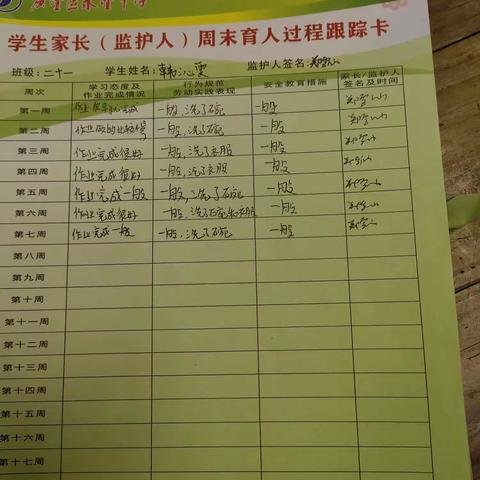 学生家长（监护人）周末育人过程跟踪卡
班级:二十一 学生姓名: 监护人签名:
周次 学习态度及作业完成情况 行为规范劳动实践表现 安全教育措施 家长/监护人签名及时间
第一周 作业 完成 一般,洗了碗 一般
第二周 作业做的比较慢 一般,洗了碗 一般
第三周 作业完成很好 一般,洗了衣服 一般
第四周 作业完成很好 一般,洗了衣服 一般
第五周 作业完成一般 一般,洗了碗 一般
第六周 作业完成很好 一般,洗了碗和衣服 一般
第七周 作业完成一般 一般,洗了碗 一般
第八周
第九周
第十周
第十一周
第十二周
第十三周
第十四周
第十五周
第十六周
第十七周